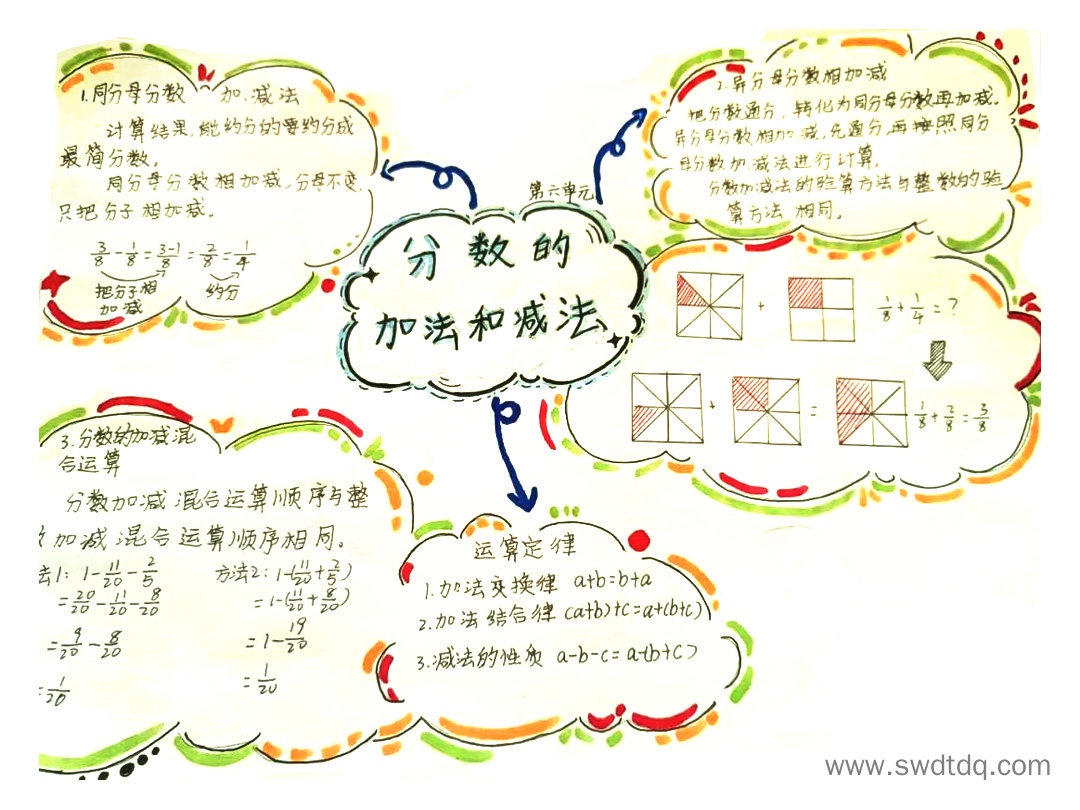 第六单元
分数的
加法和减法
1.同分母分数 加、减法
计算结果,能约分的要约分成
最简分数。
同分母分数相加减,分母不变,
只把分子相加减。
3/8-1/8=3-1/8=2/8=1/4
把分子相
加减
约分
2.异分母分数相加减
把分数通分,转化为同分母分数再加减。
异分母分数相加减,先通分,再按照同分
母分数加、减法进行计算。
分数加减法的验算方法与整数的验
算方法相同。
+ 1/8+1/4=?
+ = 1/8+2/8=3/8
3.分数的加减混
合运算
分数加减混合运算顺序与整
加减混合运算顺序相同。
法1: 1-11/20-2/5
=20/20-11/20-8/20
=9/20-8/20
=1/20
方法2: 1-(11/20+2/5)
=1-(11/20+8/20)
=1-19/20
=1/20
运算定律
1.加法交换律 a+b=b+a
2.加法结合律 (a+b)+c=a+(b+c)
3.减法的性质 a-b-c=a-(b+c)
www.swdtdq.com